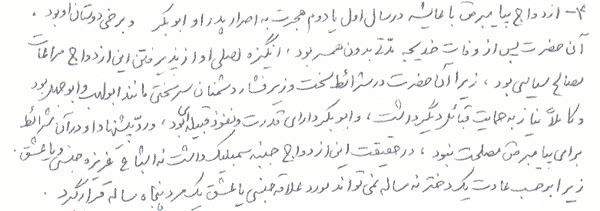 ۴- ازدواج پیامبر ص با عایشه در سال اول یا دوم هجرت به اصرار پدر او ابوبکر و برخی دوستان او بود.
آن حضرت پس از وفات خدیجه مدّتی بدون همسر بود، انگیزه اصلی او از پذیرفتن این ازدواج مراعات
مصالح سیاسی بود، زیرا آن حضرت در شرائط سخت و زیر فشار دشمنان سرسختی مانند ابولهب و ابوجهل بود
و کاملاً نیاز به حمایت قبائل دیگر داشت، و ابوبکر دارای قدرت و نفوذ قبیله‌ای بود، و ردّ پیشنهاد او در آن شرائط
برای پیامبر ص مصلحت نبود، در حقیقت این ازدواج جنبه سمبلیک داشت نه اشباع غریزه جنسی و یا عشق.
زیرا بر حسب عادت یک دختر نه ساله نمی‌تواند مورد علاقه جنسی یا عشق یک مرد پنجاه ساله قرار گیرد.